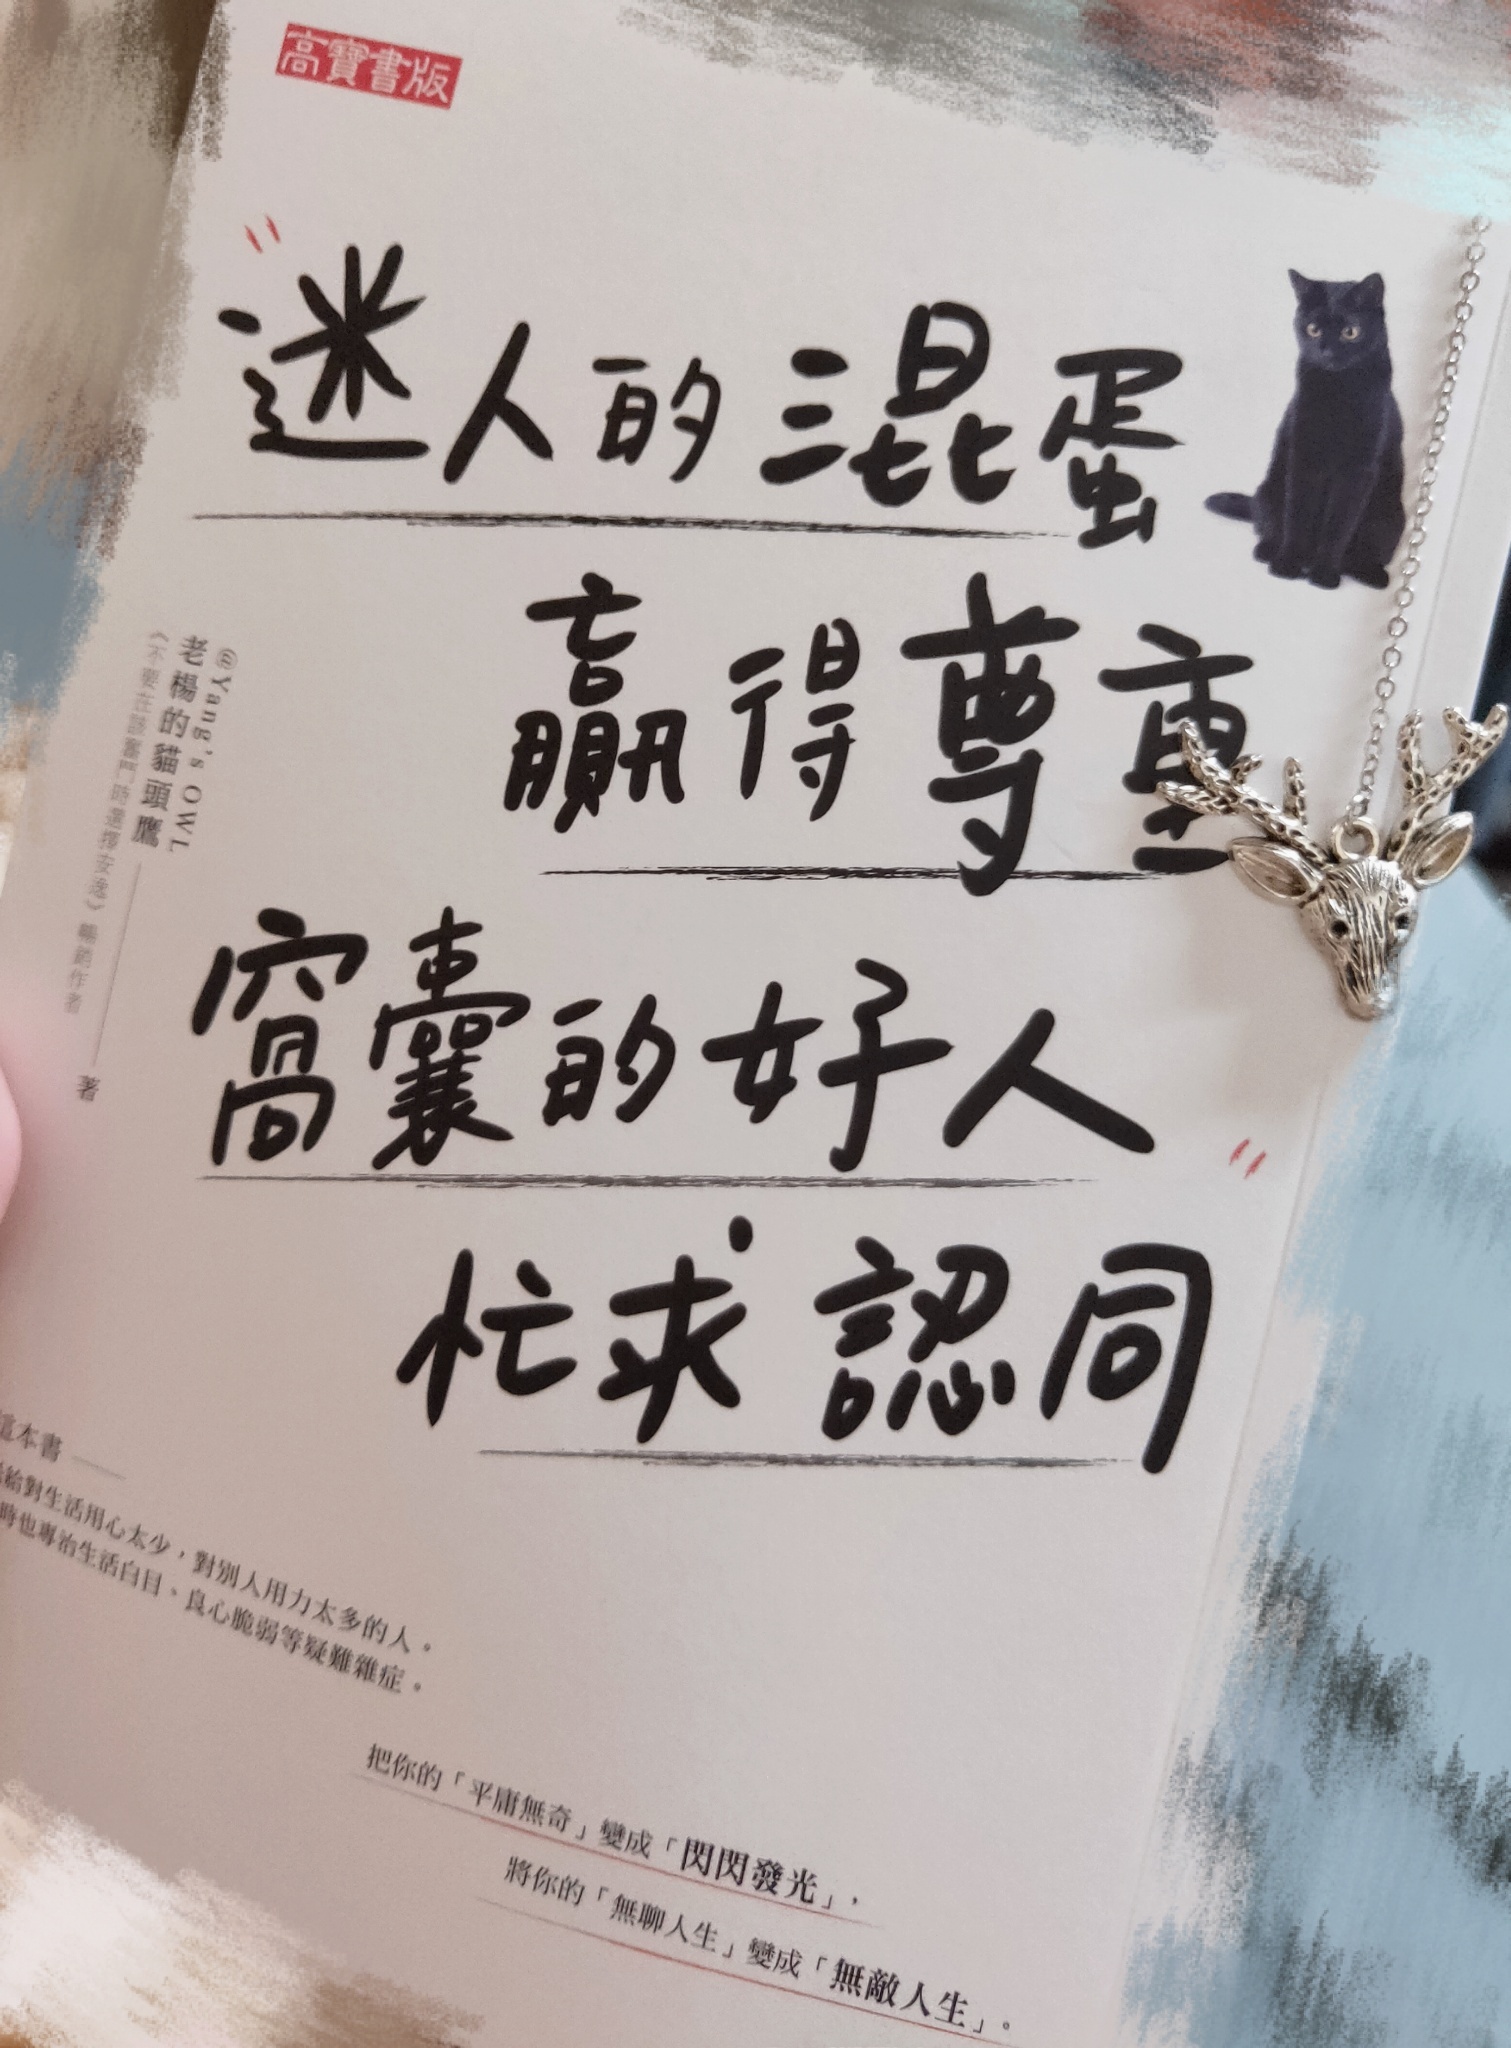 高寶書版
迷人的混蛋
贏得尊重
窩囊的好人
忙求認同
@Yang's OWL
老楊的貓頭鷹 著
《不要在該奮鬥時選擇安逸》暢銷作者
這本書
給對生活用心太少,對別人用力太多的人。
時也專治生活白目、良心脆弱等疑難雜症。
把你的「平庸無奇」變成「閃閃發光」,
將你的「無聊人生」變成「無敵人生」。